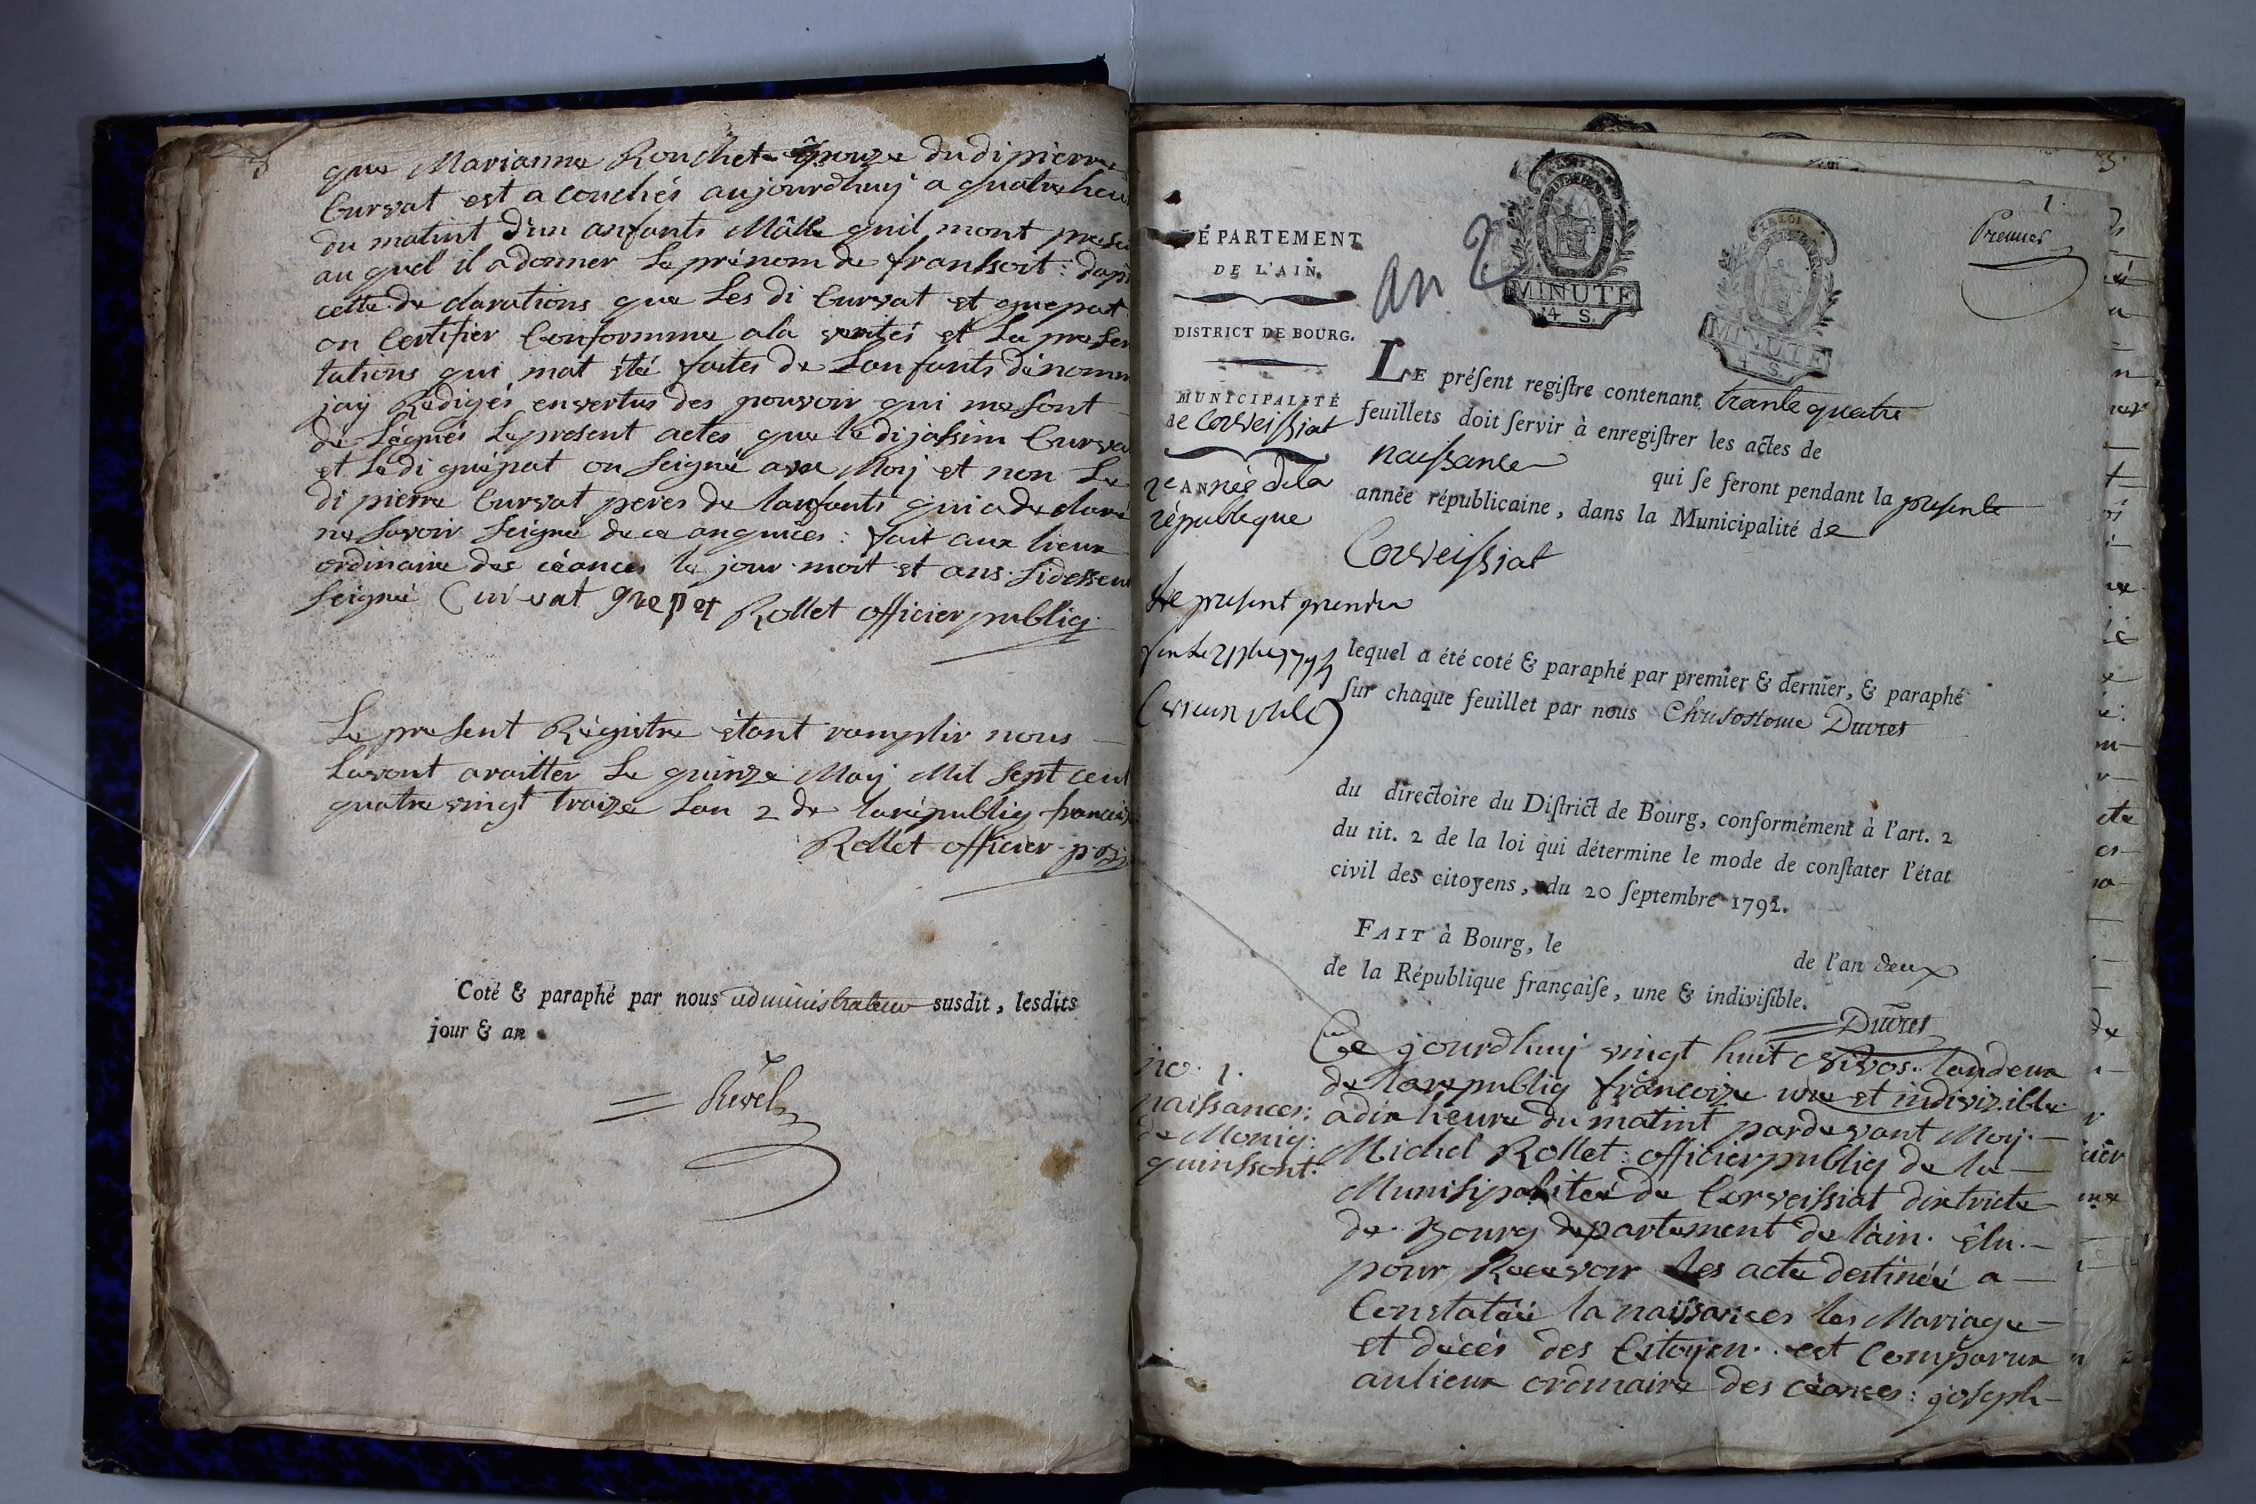 que Marianne Rouchet Épouze dudi pierre
Curvat est a couchés aujourdhuy a quatre heu
du matint d'un anfants Mâlle quil mont prese
au quel il a donner le prénom de franksoit : dapr
cette de clarations que Les di Curvat et quepat
on Certifier Conformme ala verités et La presen
tations qui mat été faites de Lanfants dénomm
jay Redigés envertus des pouvoir qui me sont
dé Légués Le present actes que le di Curva
et Le di quépat on seigné avec Moy et non Le
di pierre Curvat peres de Lanfants qui a de claré
ne savoir seigné de ce anquiées : fait aux lieux
ordinaire des céances le jour moit et ans sidesseu
seigné Curvat quepat Rollet officier publiq
Le present Régistre étant ramplir nous
Lavont araitter Le quinze May Mil sept cent
quatre vingt traize Lan 2 de la républiq francais
Rollet officier
Coté & paraphé par nous administrateur susdit, lesdits
jour & an
Revel
1.
Premier
DÉPARTEMENT
DE L'AIN.
an 2
MINUTE
4 S.
MINUTE
4 S.
DISTRICT DE BOURG.
MUNICIPALITÉ
de Corveissiat
2e ANnée de la
république
LE préſent regiſtre contenant trante quatre
feuillets doit ſervir à enregiſtrer les actes de
naissance qui ſe feront pendant la presente
année républicaine, dans la Municipalité de
Corveissiat
Le present
lequel a été coté & paraphé par premier & dernier, & paraphé
ſur chaque feuillet par nous Chrisostome Duvret
du directoire du Diſtrict de Bourg, conformément à l'art. 2
du tit. 2 de la loi qui détermine le mode de conſtater l'état
civil des citoyens, du 20 ſeptembre 1792.
FAIT à Bourg, le de l'an deux
de la République françaiſe, une & indiviſible.
Duvret
no. 1.
naissances:
de Moniq:
quinssont:
Ce jourdhuy vingt huit nivos. landeux
de larepubliq françoize une et indivizible
adix heure du matint pardevant Moy.
Michel Rollet : officier publiq de la
Munisipalitée de Corveissiat districte
de Bourg departement de lain. élu.
pour Recevoir les acte destinéé a
Constatée la naissances les Mariage
et décés des Citoyen. est Comparux
aulieux ordinaire des céances : joseph